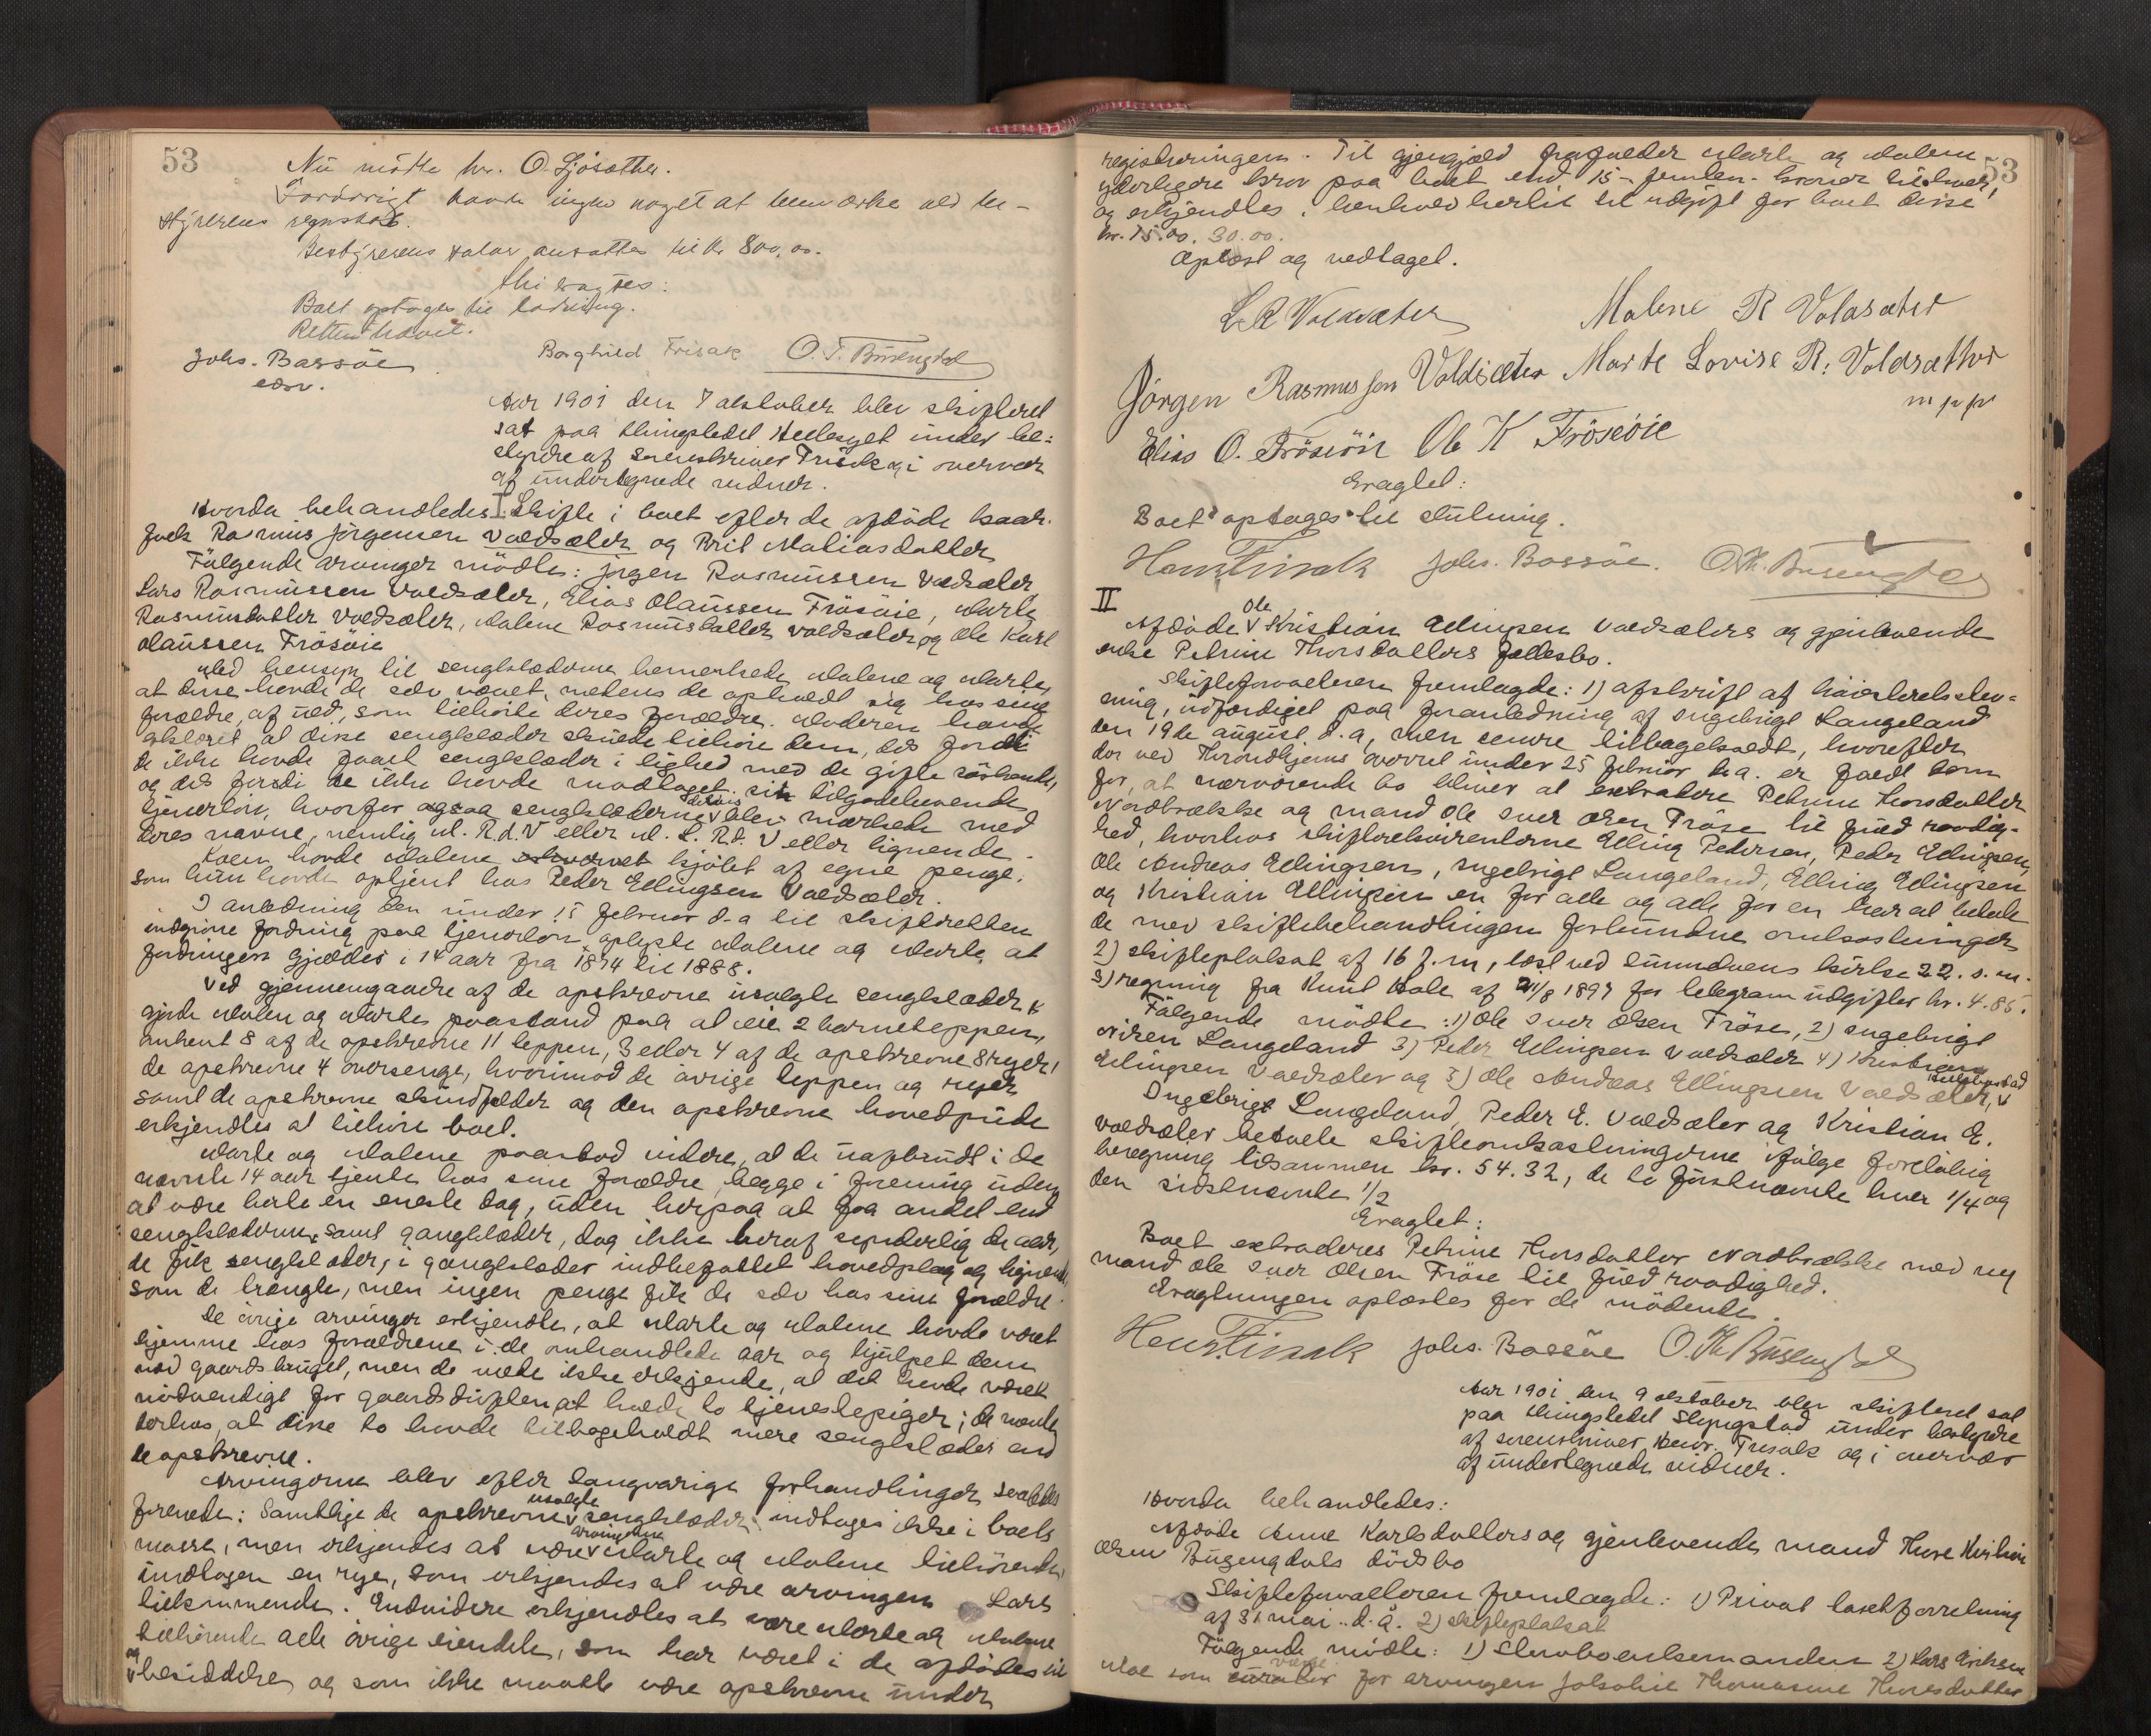 53
Nu mötte hr. O. Ljösæther.
Forövrigt havde ingen noget at bemærke ved be-
styrerens regnskab.
Bestyrerens salær ansattes til kr 800,00.
thi eragtes:
Boet optages til lodning.
Retten hævet.
Johs. Bassöe Borghild Frisak O. T. Busengdal
edsv.
Aar 1901 den 7 oktober blev skifteret
sat paa thingstedet under be-
styrelse af sorenskriver Frisak og i overvær
af undertegnede vidner.
Hvorda behandledes: I. Skifte i boet efter de afdöde kaar-
folk Rasmus Jörgensen Voldsæter og Brit Mathiasdatter
Fölgende arvinger mödte: Jörgen Rasmussen Voldsæter,
Lars Rasmussen Voldsæter, Elias Olaussen Frösöie, Marte
Rasmusdatter Voldsæter, Malene Rasmusdatter Voldsæter og Ole Karl
Olaussen Frösöie
Med hensyn til sengklæderne bemerkede Malene og Marte,
at disse havde de selv vævet, medens de opholdt sig hos sine
forældre, af uld, som tilhörte deres forældre. Moderen havde
erklæret at disse sengklæder skulde tilhöre dem, dels fordi
de ikke havde faaet sengklæder i lighed med de gifte söskende,
og dels fordi de ikke havde modtaget sin tilgodehavende
tjenerlön, hvorfor ogsaa sengklæderne delvis blev mærkede med
deres navne, nemlig M. R. d. V eller M. L. R. d. V eller lignende.
Koen havde Malene kjöbt af egne penge,
som hun havde optjent hos Peder Ellingsen Voldsæter.
I anledning den under 15 februar d. a til skifteretten
indgivne fordring paa tjenerlön oplyste Malene og Marte, at
fordringen gjælder i 14 aar fra 1874 til 1888.
Ved gjennemgaaelse af de opskrevne usolgte sengklæder
gjorde Malene og Marte paastand paa at eie 2 barneteppen,
anhent 8 af de opskrevne 11 teppen, 3 eller 4 af de opskrevne 8 ryer,
de opskrevne 4 oversenge, hvorimod de övrige teppen og ryer
samt de opskrevne skindfelder og den opskrevne hovedpude
erkjendtes at tilhöre boet.
Marte og Malene paastod videre, at de uafbrudt i de
nævnte 14 aar tjente hos sine forældre, begge i forening uden
at være borte en eneste dag, uden herpaa at faa andet end
sengklæderne, samt gangklæder, dog ikke heraf synderlig da
de fik sengklæder, i gangklæder indbefattet hovedplag og lignende,
som de trengte, men ingen penge fik de selv hos sine forældre.
De övrige arvinger erkjendte, at Marte og Malene havde været
hjemme hos forældrene i de omhandlede aar og hjulpet dem
med gaardsbruget, men de vilde ikke erkjende, at det havde været
nödvendigt for gaardsdriften at holde to tjenestepiger; de mente
derhos, at disse to havde tilbageholdt mere sengklæder end
de opskrevne.
Arvingerne blev efter langvarige forhandlinger saaledes
forenede: Samtlige de opskrevne usolgte sengklæder indtages ikke i boets
masse, men erkjendes at være arvingerne Marte og Malene tilhörende,
undtagen en rye, som erkjendes at være arvingen Lars
tilkommende. Endvidere erkjendtes at være Marte og Malene
tilhörende alle övrige eiendele, som har været i de afdödes
og besiddelse og som ikke maatte være opskrevne under
53
registreringen. Til gjengjæld frafalder Marte og Malene
yderligere krav paa boet end 15 - femten - kroner til hver,
og erkjendtes i henhold hertil til udgift for boet disse
kr. 15.00. 30.00.
Oplæst og vedtaget.
L R Voldsæter Malene R Voldsæter
Jörgen Rasmussen Voldsæter Marte Lovise R. Voldsæther
m p p
Elias O. Frösöie Ole K Frösöie
Eragtet:
Boet optages til slutning.
Henr. Frisak Johs. Bassöe. O. Th. Busengdal
II
Afdöde Ole Kristian Ellingsen Voldsæters og gjenlevende
enke Petrine Thorsdatters fællesbo.
Skifteforvalteren fremlagde: 1) afskrift af höiesteretsstev-
ning, udfærdiget paa foranledning af Ingebrigt Langeland
den 19de august d. a, men senere tilbagekaldt, hvorefter
der ved Throndhjems overret under 25 februar d. a. er faldt dom
for, at nærværende bo bliver at extradere Petrine Thorsdatter
Nordbrække og mand Ole Iver Olsen Fröse til fuld raadig-
hed, hvorhos skifterekvirenterne Elling Petersen, Peder Ellingsen,
Ole Andreas Ellingsen, Ingebrigt Langeland, Elling Ellingsen
og Kristian Ellingsen en for alle og alle for en har at betale
de med skiftebehandlingen forbundne omkostninger
2) skifteplakat af 16 f. m, læst ved Sunndvens kirke 22. s. m.
3) regning fra Knut Hole af 1897 for telegram udgifter kr. 4.85.
Fölgende mödte: 1) Ole Iver Olsen Fröse, 2) Ingebrigt
Nilsen Langeland 3) Peder Ellingsen Voldsæter 4) Kristian
Ellingsen Voldsæter og 5) Ole Andreas Ellingsen Voldsæter,
Ingebrigt Langeland, Peder E. Voldsæter og Kristian E.
Voldsæter betalte skifteomkostningerne ifölge forelöbig
beregning tilsammen kr. 54.32, de to förstnævnte hver 1/4 og
den sidstnævnte 1/2
Eragtet:
Boet extraderes Petrine Thorsdatter Nordbrække med ny
mand Ole Iver Olsen Fröse til fuld raadighed.
Eragtningen oplæstes for de mödende.
Henr. Frisak Johs. Bassöe O. Th Busengdal
Aar 1901 den 9 oktober blev skifteret sat
paa thingstedet Slyngstad under bestyrelse
af sorenskriver Henr. Frisak og i overvær
af undertegnede vidner.
Hvorda behandledes:
Afdöde Anne Karlsdatters og gjenlevende mand Thore Kristian
Olsen Bugengdals dödsbo
Skifteforvalteren fremlagde: 1) Privat taxtforretning
af 31 mai d. å. 2) skifteplakat
Fölgende mödte: 1) Stervboenkemanden 2) Lars Eriksen
som værge for arvingen Thomasine Thoresdatter